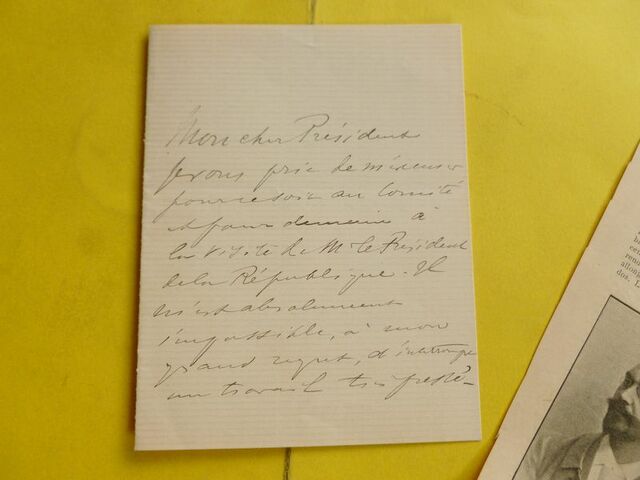 Mon cher Président
je vous prie de m'excuser
pour ce soir au Comité
et pour demain à
la visite de Mr le Président
de la République. Il
m'est absolument
impossible, à mon
grand regret, d'interrompre
un travail très pressé